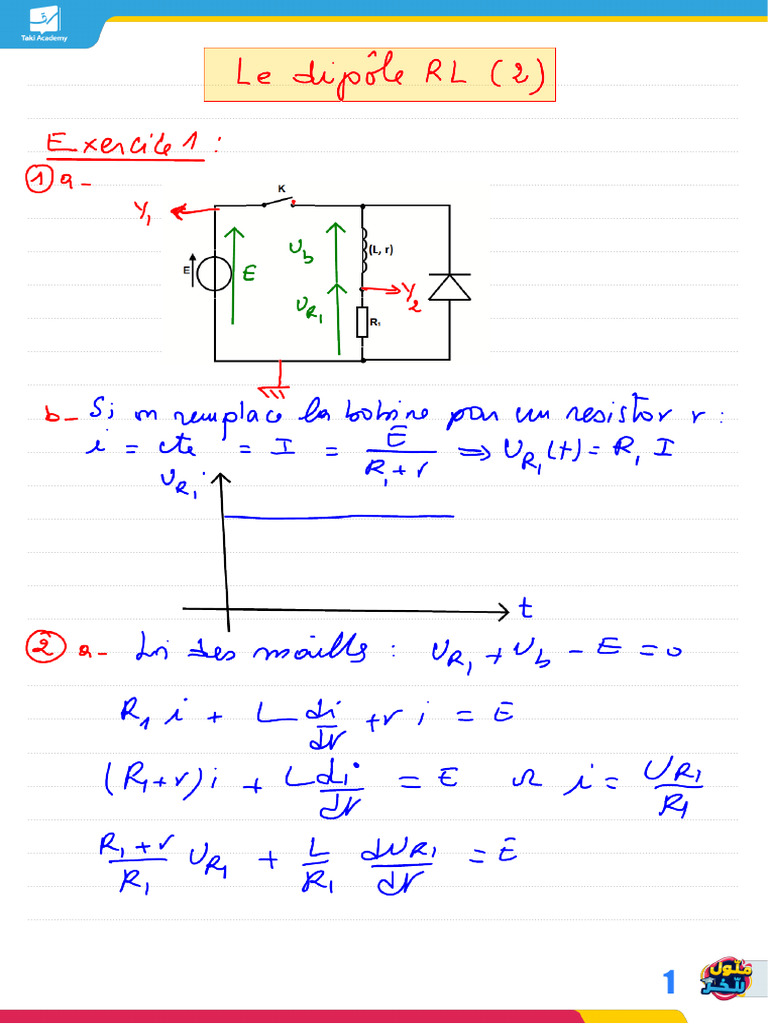 Taki Academy
Le dipôle RL (2)
Exercice 1 :
1) a-
K
Y1
(L, r)
Ub
E
E
Y2
UR1
R1
b- Si on remplace la bobine par un resistor r :
i = cte = I = E/(R1+r) ⇒ UR1(t) = R1 I
UR1
t
2) a- Loi des mailles : UR1 + Ub - E = 0
R1 i + L di/dt + r i = E
(R1+r) i + L di/dt = E or i = UR1/R1
(R1+r)/R1 UR1 + L/R1 dUR1/dt = E
1